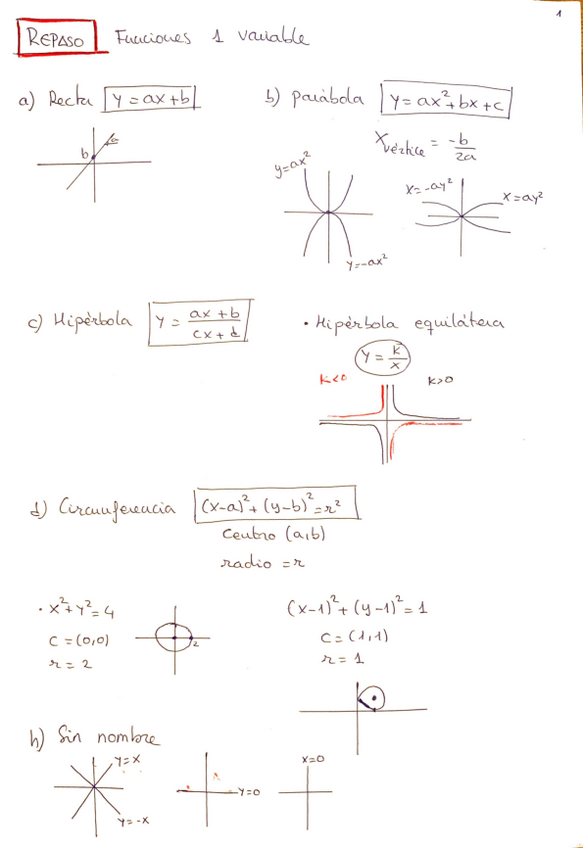 1
REPASO Funciones 1 variable
a) Recta y = ax+b
b
a
b) parábola y = ax²+bx+c
Xvértice = -b/2a
y=ax²
y=-ax²
x=-ay²
x=ay²
c) Hipérbola y = ax+b/cx+d
• Hipérbola equilátera
y = k/x
k<0
k>0
d) Circunferencia (x-a)²+(y-b)²=r²
Centro (a,b)
radio = r
• x²+y²=4
C = (0,0)
r = 2
2
(x-1)²+(y-1)²=1
C = (1,1)
r = 1
h) Sin nombre
y=x
y=-x
y=0
x=0